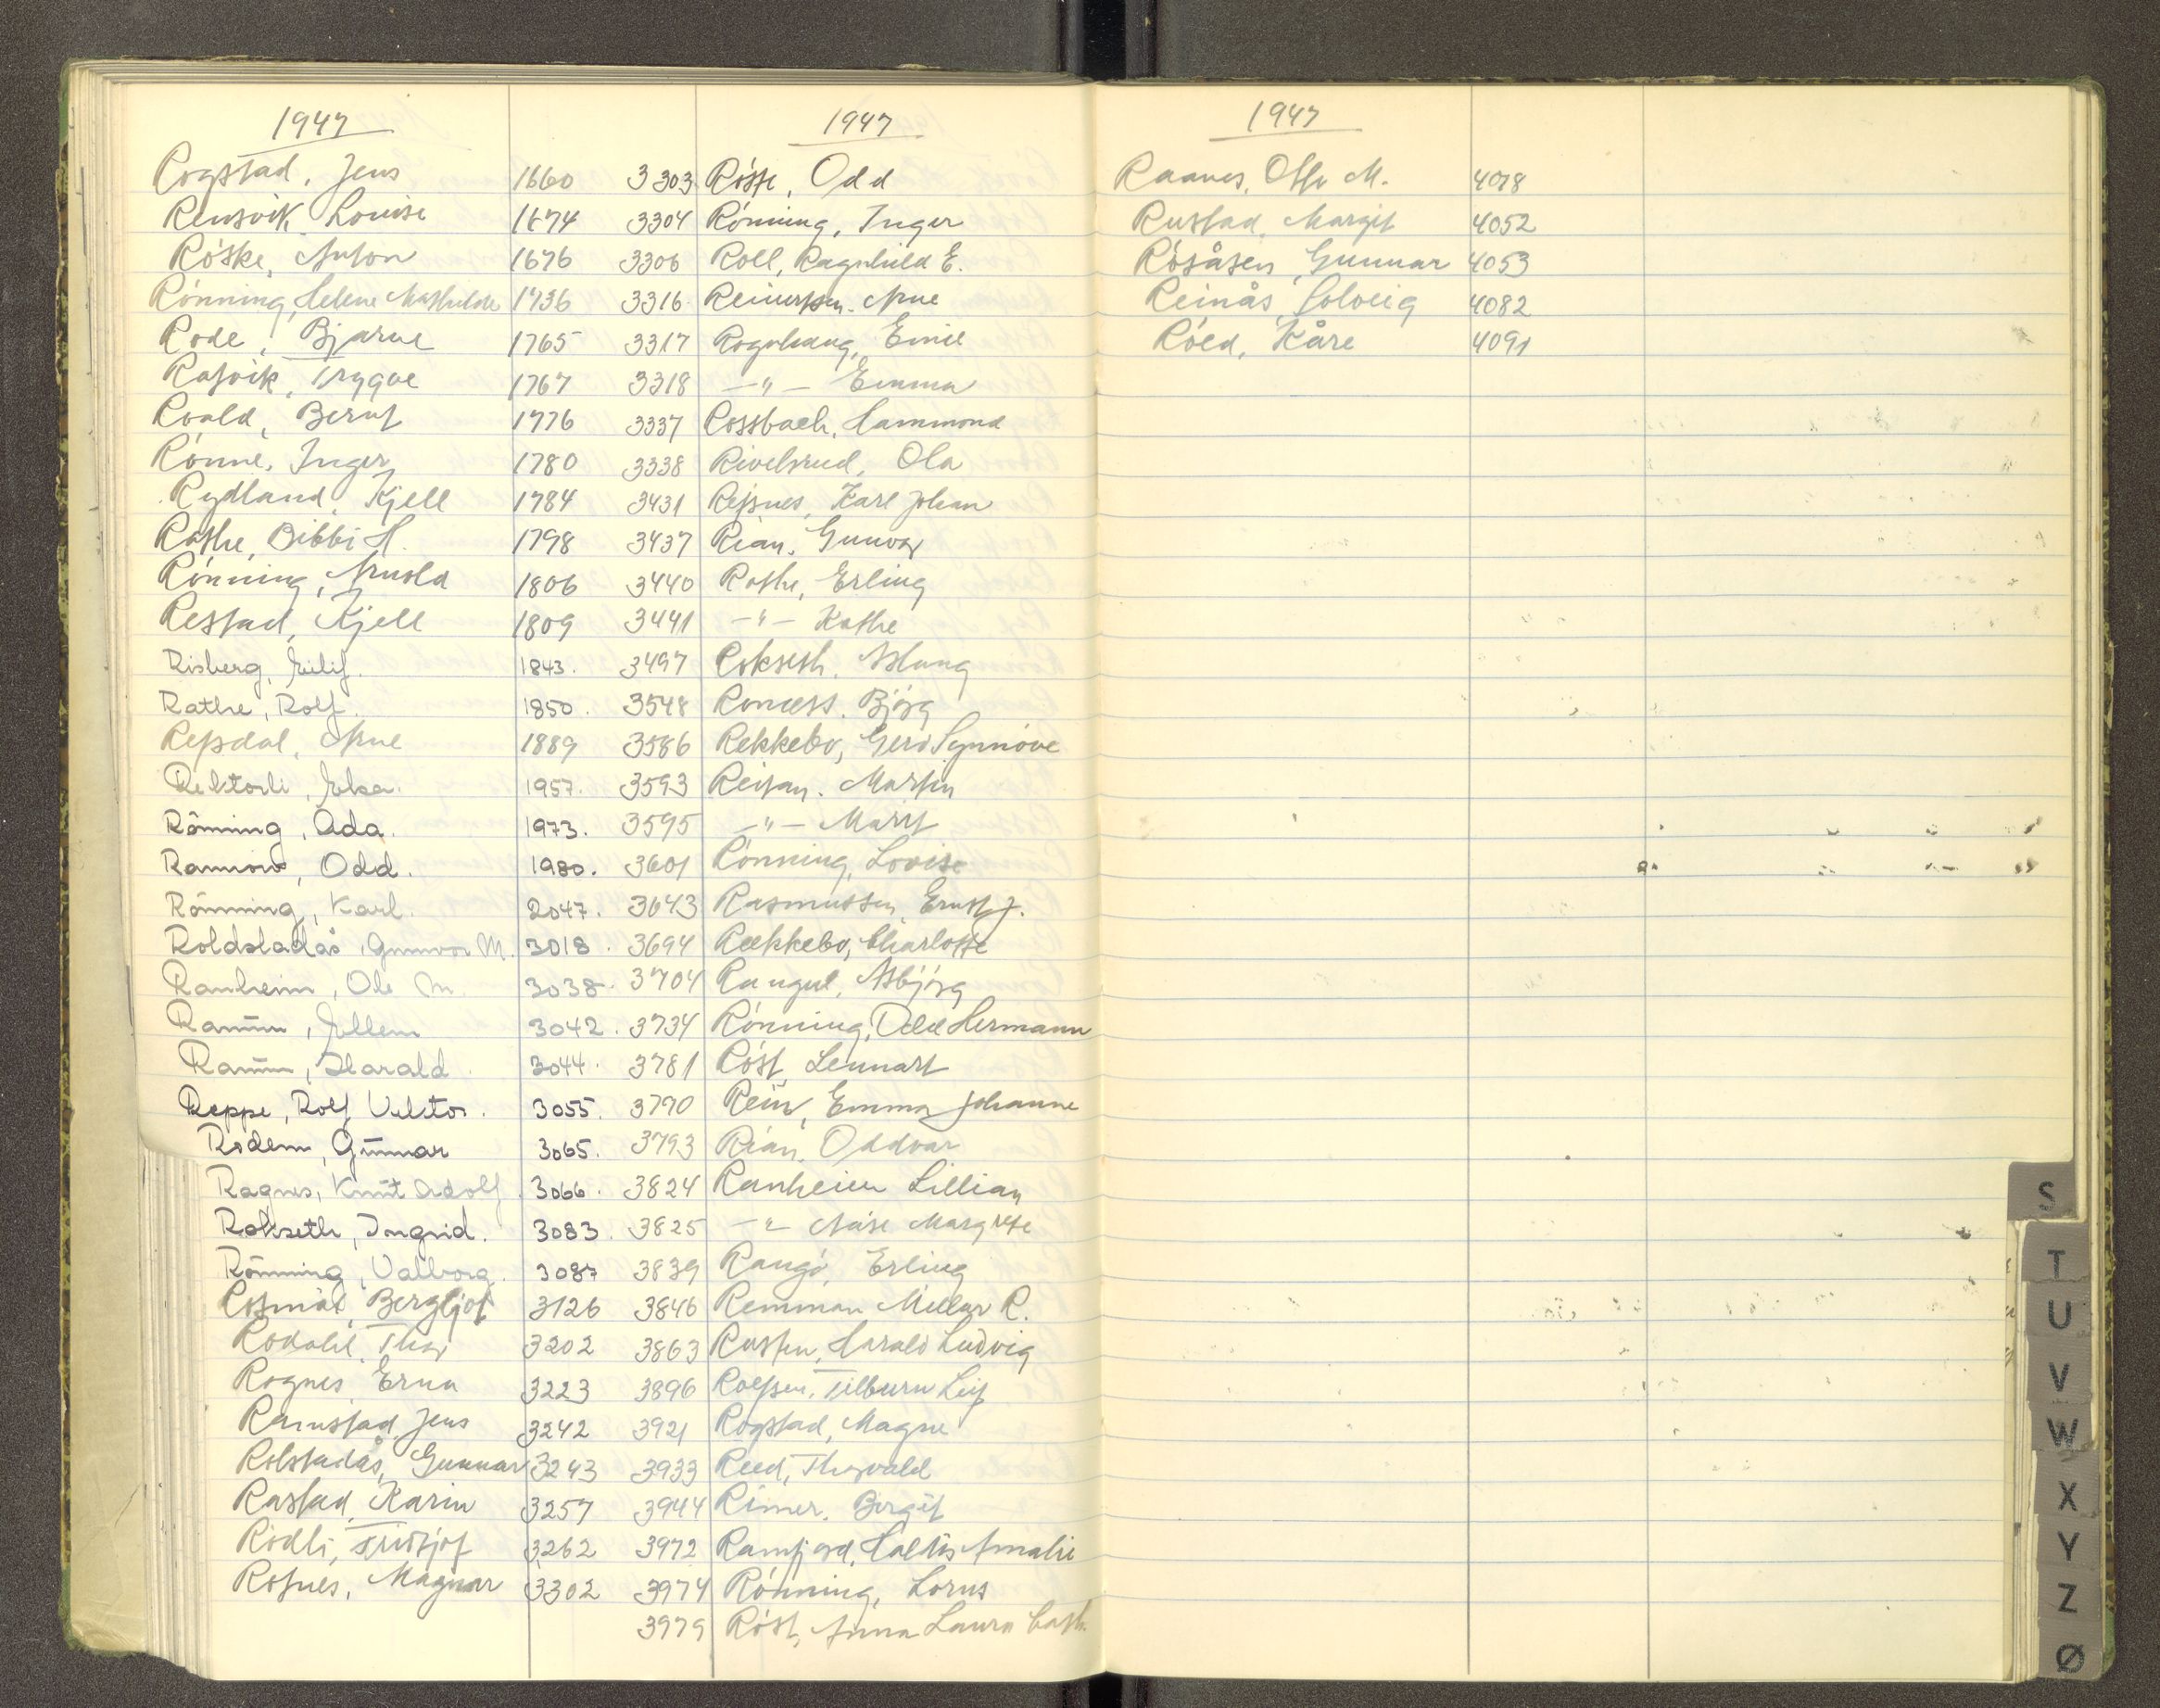 1947
Rogstad, Jens 1660
Rensvik Louise 1674
Røske, Anton 1676
Rønning, Helene Mathilde 1736
Rode, Bjarne 1765
Rasvik, Trygve 1767
Roald, Bernt 1776
Rønne, Inger 1780
Rydland, Kjell 1784
Rathe, Bibbi H. 1798
Rønning, Arnold 1806
Restad, Kjell 1809
Risberg, Eilif. 1843.
Rathe, Rolf. 1850.
Repsdal, Arne 1889
Elsa. 1957.
Rönning, Ada. 1973.
Odd. 1980.
Rönning, Karl. 2047.
Roldstadås, Gunvor M. 3018.
Ranheim, Ole M. 3038.
Ramm, Ellen 3042.
Ramm, Harald. 3044.
Reppe, Rolf Viktor. 3055.
Rodem, Gunnar 3065.
Ragnes, Knut Adolf 3066.
Rokseth, Ingrid. 3083.
Rönning, Valborg. 3087
Rosmæl, Bergljot 3126
Rodahl, Thor 3202
Rognes, Erna 3223
Ramstad, Jens 3242
Rolstadås, Gunnar 3243
Rastad, Karin 3257
Rødli, Fridtjof 3262
Rosnes, Magnar 3302
1947
3303 Røste, Odd
3304 Rønning, Inger
3306 Roll, Ragnhild E.
3316 Reinertsen, Arne
3317 Rognhaug, Emil
3318 —"— Emma
3337 Rossbach, Hammond
3338 Rivelsrud, Ola
3431 Refsnes, Karl Johan
3437 Rian, Gunvor
3440 Rothe, Erling
3441 —"— Kathe
3497 Rokseth, Aslaug
3548 Romæss, Bjørg
3586 Rekkebo, Gerd Synnøve
3593 Reitan, Martin
3595 —"— Marit
3601 Rønning, Lovise
3643 Rasmussen, Ernst J.
3694 Rækkebo, Charlotte
3704 Rangul, Asbjørg
3734 Rønning, Odd Hermann
3781 Røst, Lennart
3790 Rein, Emma Johanne
3793 Rian, Oddvar
3824 Ranheim Lillian
3825 —"— Aase Margrete
3839 Rangø, Erling
3846 Remman Millar R.
3863 Rusten, Harald Ludvig
3896 Rolfsen, Tilburn Leif
3921 Rogstad, Magne
3933 Reed, Thorvald
3944 Rimer, Birgit
3972 Ramfjord, Haldis Amalie
3974 Rønning, Lorns
3979 Røst, Anna Laura Cath.
1947
Raanes, Otto M. 4018
Rustad, Margit 4052
Røsåsen, Gunnar 4053
Reinås, Solveig 4082
Røed, Kåre 4091
S
T
U
V
W
X
Y
Z
Ø